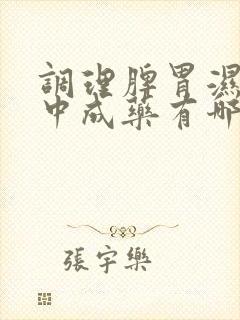 調理脾胃濕
中成藥有哪
張宇樂